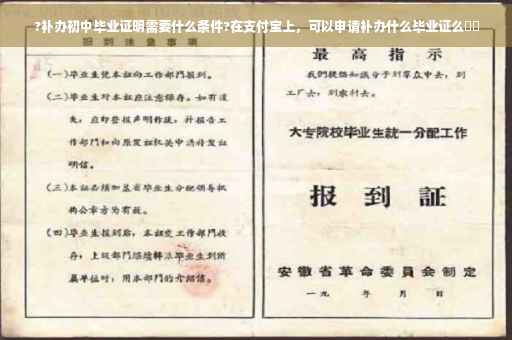 ?补办初中毕业证明需要什么条件?在支付宝上，可以申请补办什么毕业证么
报到注意事项
(一)毕业生凭本证向工作部门报到。
(二)毕业生对本证应注意保存。如有遗
失，应即登报声明作废，并报告工
作部门和向原发证机关申请补发证
明信。
(三)本证必须加盖省毕业生分配领导机
构公章方为有效。
(四)毕业生报到后，本证交工作部门收
存；上级部门
毕业生到所
属单位时，用本部门的介绍信。
最高指示
我们提倡知识分子到群众中去，到
工厂去，到农村去。
大专院校毕业生统一分配工作
报到证
安徽省革命委员会制定
一九 年 月 日